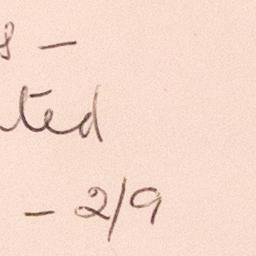 8 —
ted
– 2/9